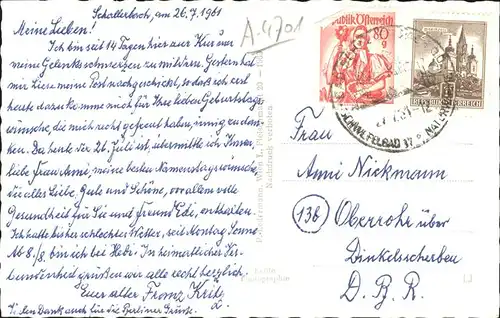 Schallerbach, am 26.7.1961
Meine Lieben!
Ich bin seit 14 Tagen hier zur Kur um
meine Gelenksschmerzen zu mildern. Gestern hat
mir Liesi meine Post nachgeschickt, sodaß ich erst
heute dazu komme mich für Ihre lieben Geburtstags-
wünsche, die mich recht gefreut haben, innig zu dan-
ken. Da heute der 26. Juli ist, übermittle ich Ihnen,
liebe Frau Ami, meine besten Namenstagswünsche,
die alles Liebe, Gute und Schöne, vor allem volle
Gesundheit für Sie und Freund Edi, enthalten.
Ich hatte bisher schlechtes Wetter, seit Montag Sonne
Ab 8./8. bin ich bei Hedi. In heimatlicher Ver-
bundenheit grüßen wir alle recht herzlich.
Euer alter Franz Kritz
Vielen Dank auch für die Berliner Grüße.
A-4701
Nachdruck verboten
Echte
Photographie
Republik Österreich
80
g
REPUBLIK ÖSTERREICH
SCHWEFELBAD 37°
Frau
Ami Nickmann
(13b) Oberrohr über
Dinkelscherben
D. B. R.